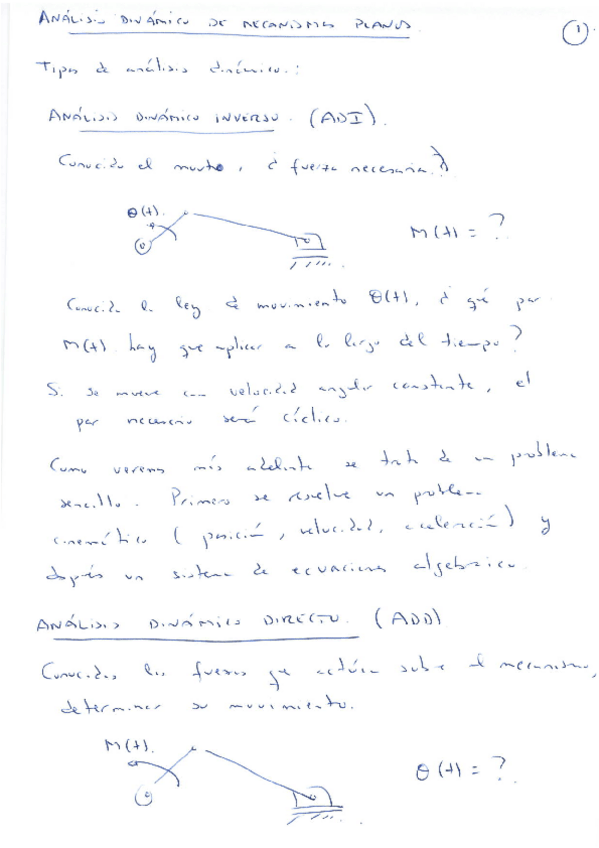 ANÁLISIS DINÁMICO DE MECANISMOS PLANOS.
1
Tipos de análisis dinámico.:
ANÁLISIS DINÁMICO INVERSO. (ADI).
Conocido el movto, ¿ fuerza necesaria?
θ(t).
M(t) = ?
Conocida la ley de movimiento θ(t), ¿ qué par
M(t) hay que aplicar a lo largo del tiempo?
Si se mueve con velocidad angular constante, el
par necesario será cíclico.
Como veremos más adelante se trata de un problema
sencillo. Primero se resuelve un problema
cinemático (posición, velocidad, aceleración) y
después un sistema de ecuaciones algebraico.
ANÁLISIS DINÁMICO DIRECTO. (ADD)
Conocidas las fuerzas que actúan sobre el mecanismo,
determinar su movimiento.
M(t).
θ(t) = ?